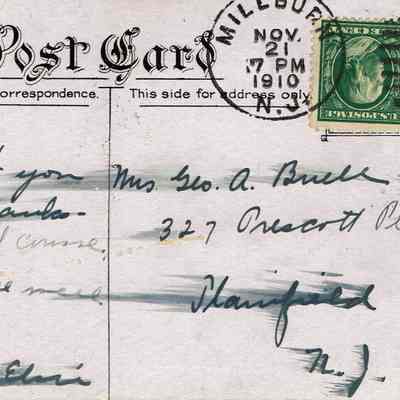 Post Card
orrespondence.
This side for address only
MILLBURN
NOV.
21
7 PM
1910
N.J.
you
course.
well
Elsie
Mrs Geo. A. Buell
327 Prescott Pl
Plainfield
N. J.